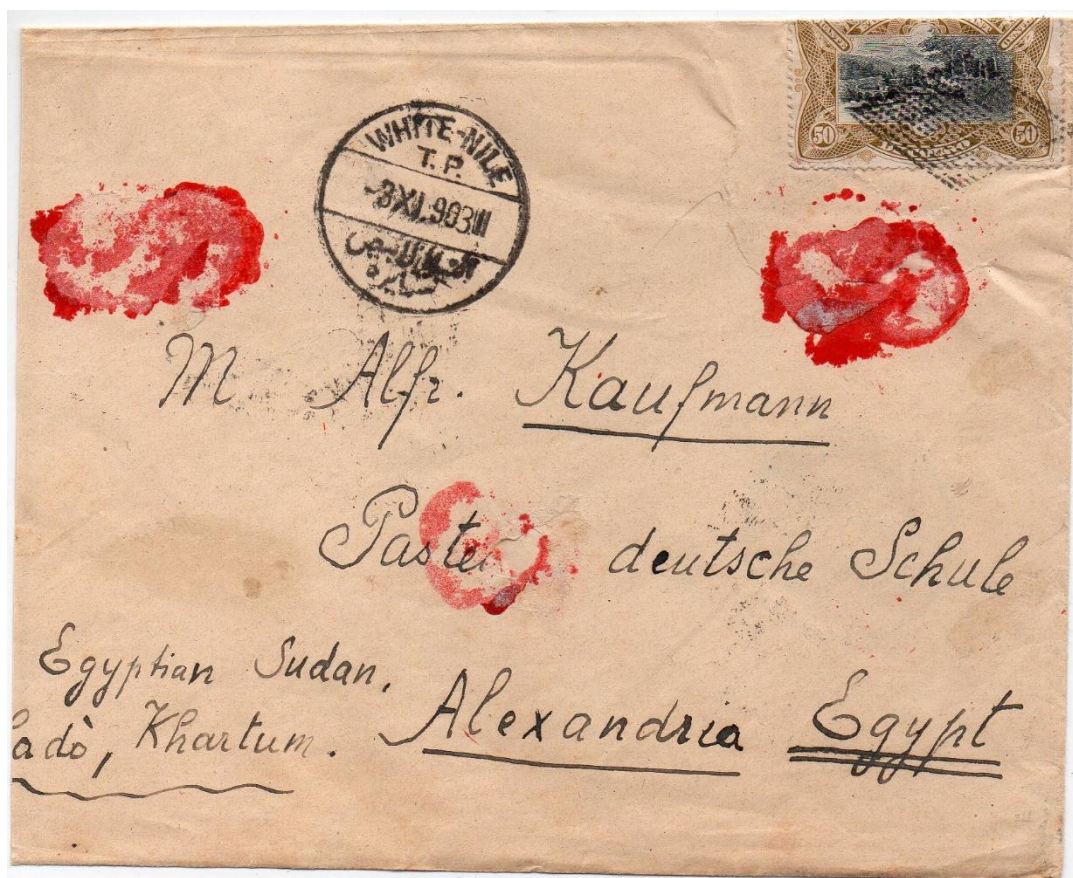 50 50
WHITE-NILE
T.P.
8 XI. 903 III
M Alfr. Kaufmann
deutsche Schule
Egyptian Sudan,
Ladò, Khartum.
Alexandria Egypt